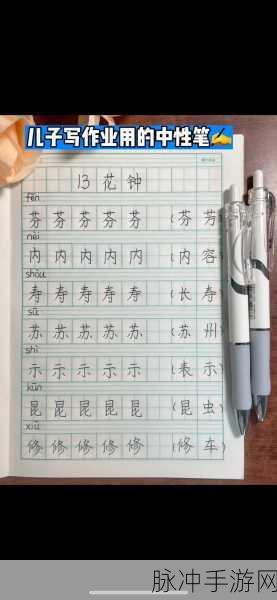 儿子写作业用的中性笔✍
13 花钟
fēn
芬 芬 芬 芬 芬 (芬 芳)
nèi
内 内 内 内 内 (内 容)
shòu
寿 寿 寿 寿 寿 (长 寿)
sū
苏 苏 苏 苏 苏 (苏 州)
shì
示 示 示 示 示 (表 示)
kūn
昆 昆 昆 昆 昆 (昆 虫)
xiū
修 修 修 修 修 (修 车)
脉冲手游网